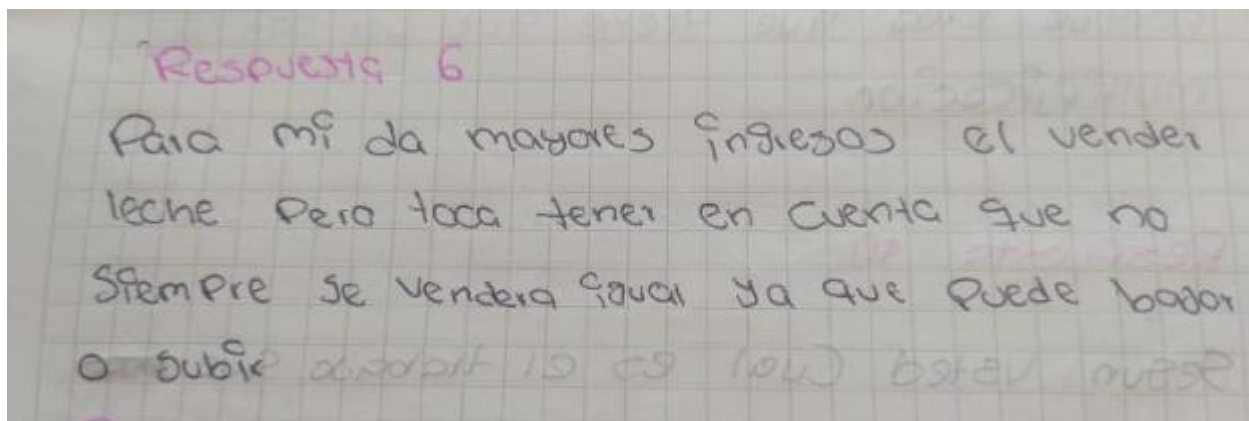 Respuesta 6
Para mi da mayores ingresos el vender
leche Pero toca tener en cuenta que no
siempre se vendera igual ya que puede bajar
o subir